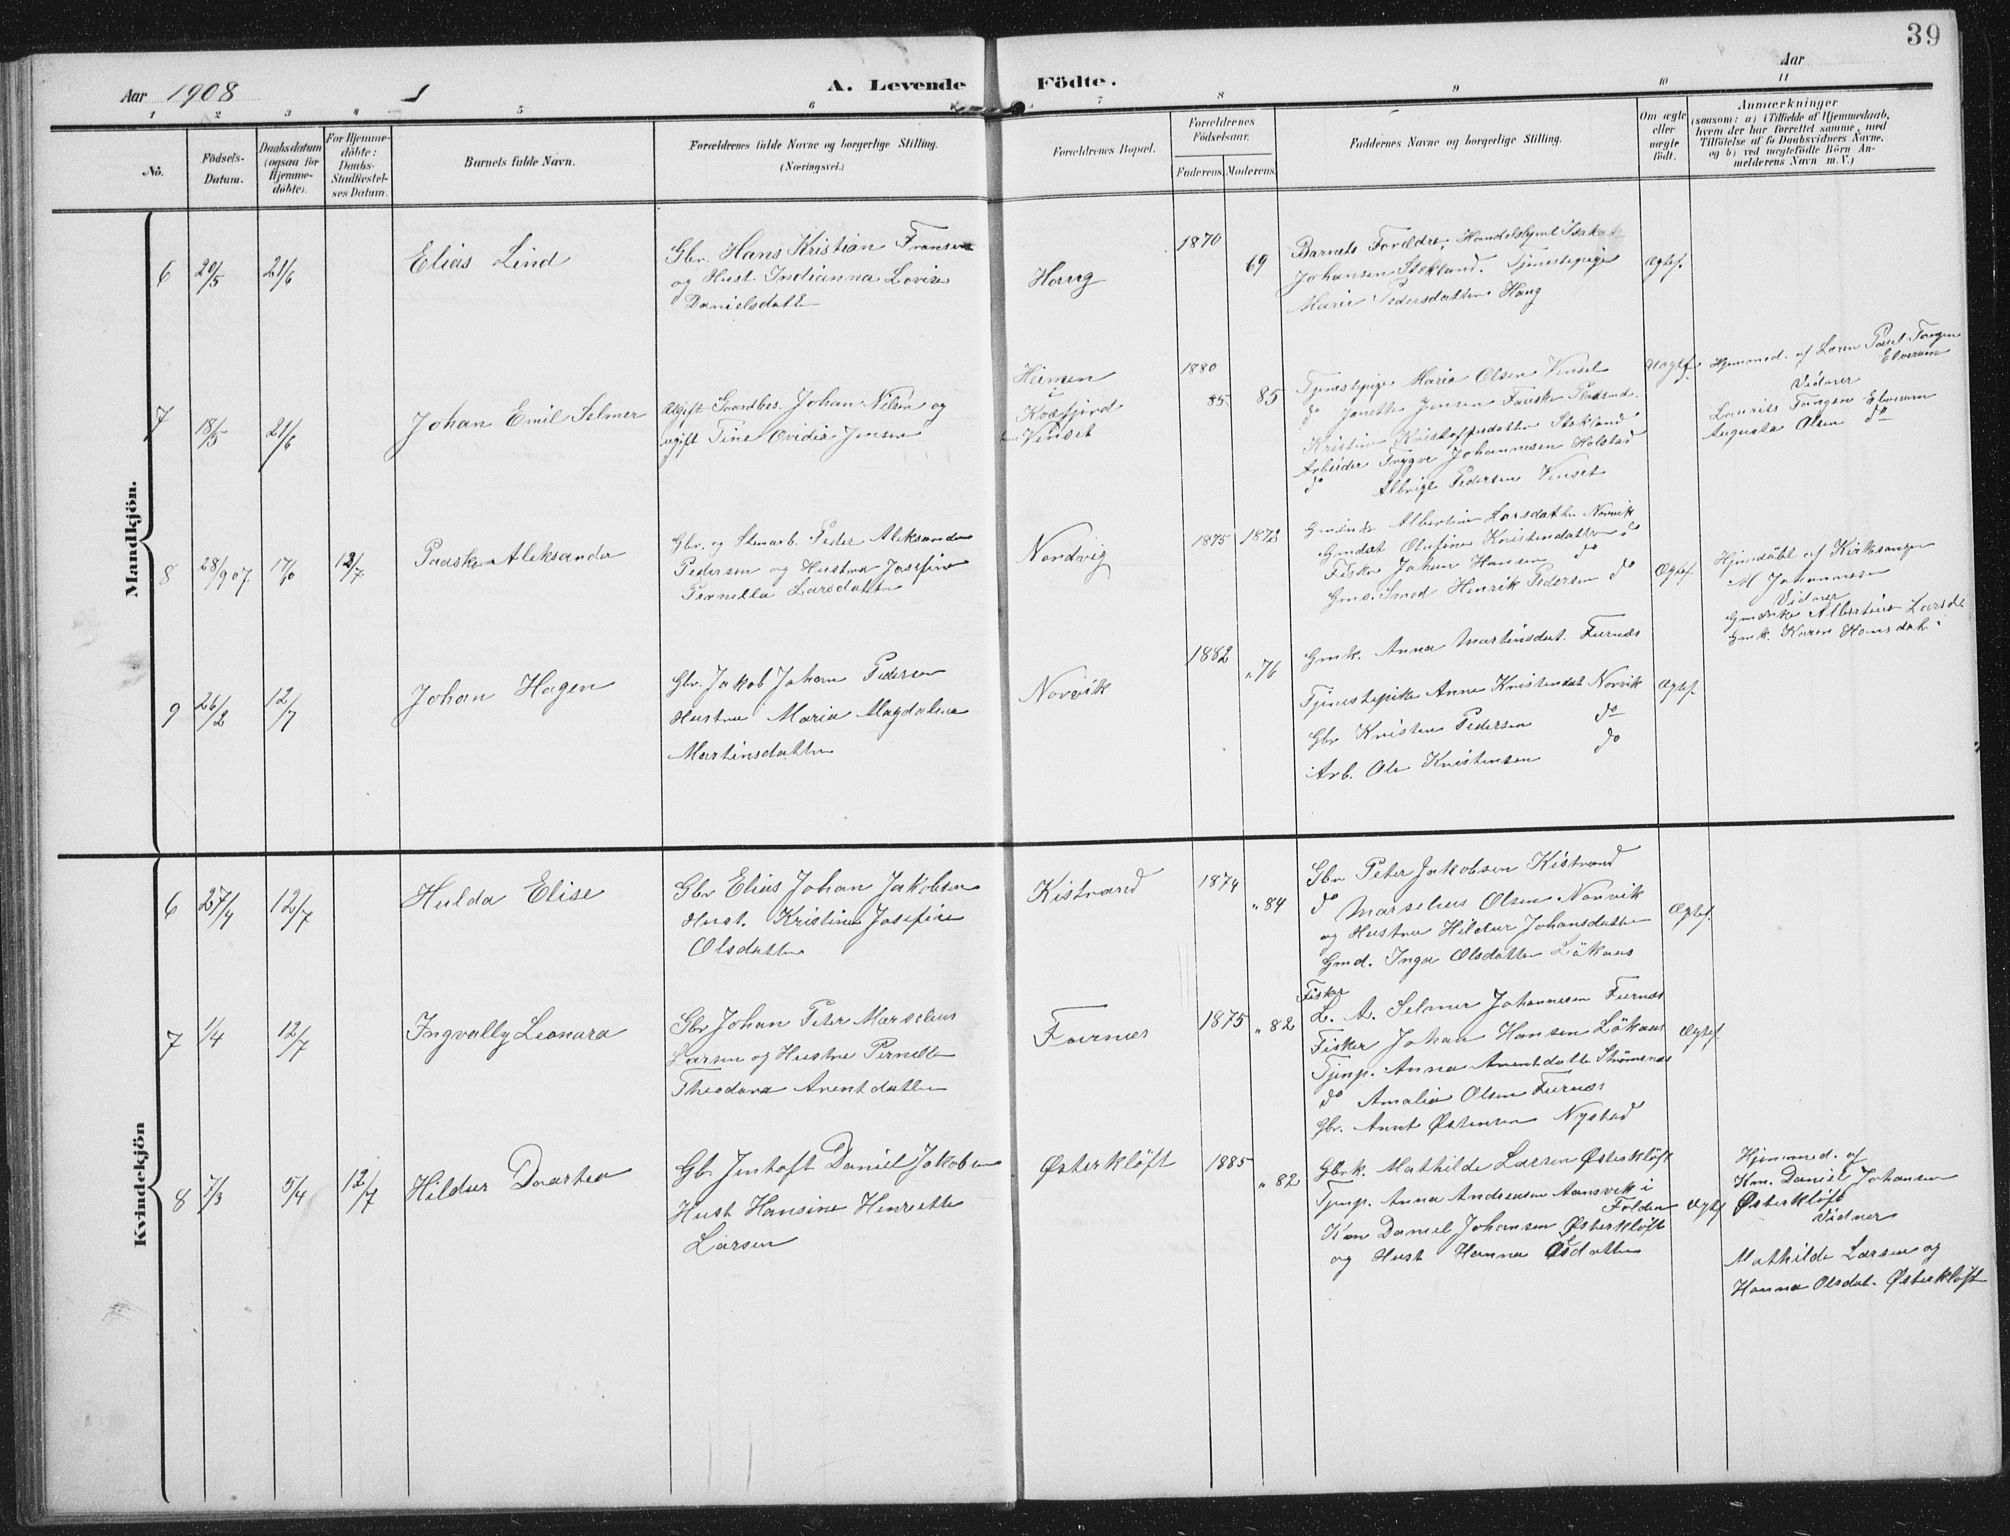 39
Aar 1908
A. Levende Födte.
Aar
1 2 3 4 5 6 7 8 9 10 11
No.
Födsels-Datum.
Daabsdatum (ogsaa for Hjemme-døbte).
For Hjemme-døbte: Daabs-Stadfæstel-ses Datum.
Barnets fulde Navn.
Forældrenes fulde Navne og borgerlige Stilling.
(Næringsvei.)
Forældrenes Bopæl.
Forældrenes Födselsaar.
Faderens. Moderens.
Faddernes Navne og borgerlige Stilling.
Om ægte eller uægte födt.
Anmærkninger
(saasom: a) i Tilfælde af Hjemmedaab,
hvem der har forrettet samme, med
Tilföielse af to Daabsvidners Navne,
og b) ved uægtefödte Börn An-
melderens Navn m. V.)
Mandkjön.
6 20/5 21/6 Elias Lind
Gbr. Hans Kristian Fransen
og Hust. Indianna Lovise
Danielsdatte
Haug
1870 69
Barnets Forældre, Handelsbyml Isakat
Johansen Stokland. Tjenestepige
Marie Pedersdatter Haug
Ægtef.
7 18/5 21/6 Johan Emil Selmer
Ugift Gaardbr. Johan Nilsen og
ugift Tine Ovidia Jensen
Hemmen
i
Kvæfjord
Venset
1880
85 85
Tjenestepige Maria Olsen Venset
do Janette Jensen Fauske
Kristine Kristoffersdatter Stokland
Arbeider Trygve Johannesen Holstad
do Albrigt Pedersen Venset
Uægtef.
Hjemmed. af Loren Paul Tangen
Elverum
Vidner
Laurits Tangen Elverum
Augusta Olsen do
8 28/9 07 17/10 12/7 Paaske Aleksander
Gbr. og Stenarb. Peder Aleksander
Pedersen og Hustru Josefine
Pernella Larsdatter
Nordvig
1875 1872
Gmdnk Albertine Larsdatter Norvik
Gmdat Olufine Kristendatter do
Fisker Johan Hansen do
Gms. Smed Henrik Pedersen do
Ægtef.
Hjemdöbt af Kirkesanger
M Johannesen
Vidner
Gmdnke Albertine Larsdt
Gmk. Karen Hansdatt.
9 26/2 12/7 Johan Hagen
Gbr. Jakob Johan Pedersen
Hustru Maria Magdalena
Martinsdatter
Norvik
1882 " 76
Gmk. Anna Martinsdat. Furnæs
Tjenestepike Anna Kristendat Norvik
Gbr Kristen Pedersen do
Arb. Ole Kristensen do
Ægtef.
Kvindekjön
6 27/4 12/7 Hulda Elise
Gbr Elias Johan Jakobsen
Hust. Kristine Josefine
Olsdatter
Kistrand
1874 " 84
Gbr Peter Jakobsen Kistrand
do Marselius Olsen Norvik
og Hustru Hildur Johansdatter
Gmd. Inga Olsdatter Lökaas
Ægtef.
7 1/4 12/7 Ingvally Leonora
Gbr Johan Peter Marselius
Larsen og Hustru Pernelle
Theodora Arentdatter
Furnæs
1875 " 82
Fisker
L. A. Selmer Johannesen Furnæs
Fisker Johan Hansen Lökaas
Tjenp. Anna Arentdatte Strømsnæs
do Amalia Olsen Furnæs
Gbr. Arent Østensen Nystad
Ægtef.
8 7/3 5/4 12/7 Hildur Doartea
Gb. Jentoft Daniel Jakobsen
Hust Hansine Henriette
Larsen
Østerkløft
1885 " 82
Gbrk. Mathilde Larsen Østerkløft
Tjenp. Anna Andreasen Aansvik i
Folden
Kan Daniel Johansen Østerkløft
og Hust Hanna Olsdatter
Ægtef
Hjemmed. af
Kan. Daniel Johansen
Østerkløft
Vidner
Mathilde Larsen og
Hanna Olsdat. Østerkløft